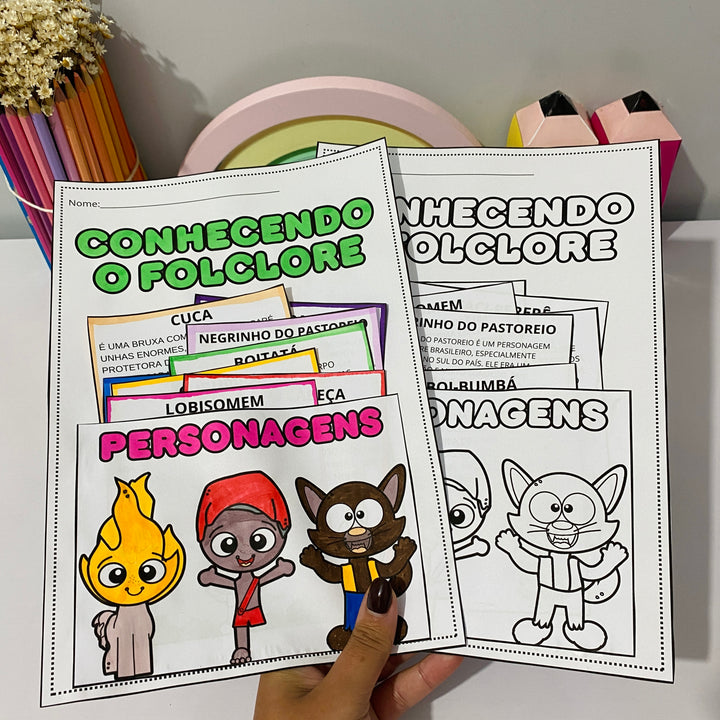 Nome:
CONHECENDO
O FOLCLORE
CUCA
É UMA BRUXA COM
UNHAS ENORMES,
PROTETORA D
NEGRINHO DO PASTOREIO
BOITATÁ
RPO
EÇA
LOBISOMEM
PERSONAGENS
NHECENDO
FOLCLORE
OMEM
RINHO DO PASTOREIO
DO PASTOREIO É UM PERSONAGEM
RE BRASILEIRO, ESPECIALMENTE
NO SUL DO PAÍS. ELE ERA UM
BOI-BUMBÁ
ONAGENS